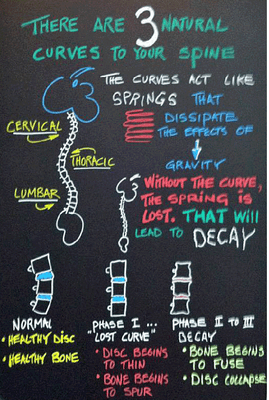 THERE ARE 3 NATURAL
CURVES TO YOUR SPINE
THE CURVES ACT LIKE
SPRINGS THAT
DISSIPATE
THE EFFECTS OF
GRAVITY
CERVICAL
THORACIC
LUMBAR
WITHOUT THE CURVE,
THE SPRING IS
LOST. THAT WILL
LEAD TO DECAY
NORMAL
• HEALTHY DISC
• HEALTHY BONE
PHASE I ...
"LOST CURVE"
• DISC BEGINS
TO THIN
• BONE BEGINS
TO SPUR
PHASE II TO III
DECAY
• BONE BEGINS
TO FUSE
• DISC COLLAPSE